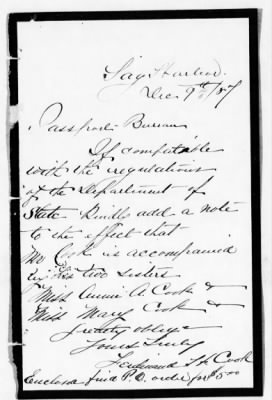 Sag Harbor.
Dec 9th/87
Passport Bureau
If compatable
with the regulations
of the Department of
State Kindly add a note
to the effect that
Mr Cook is accompanied
by his two sisters
Miss Annie A. Cook &
Miss Mary Cook &
greatly oblige
Yours Truly
Ferdinand Cook
Enclosed find P.O. order for $5.00